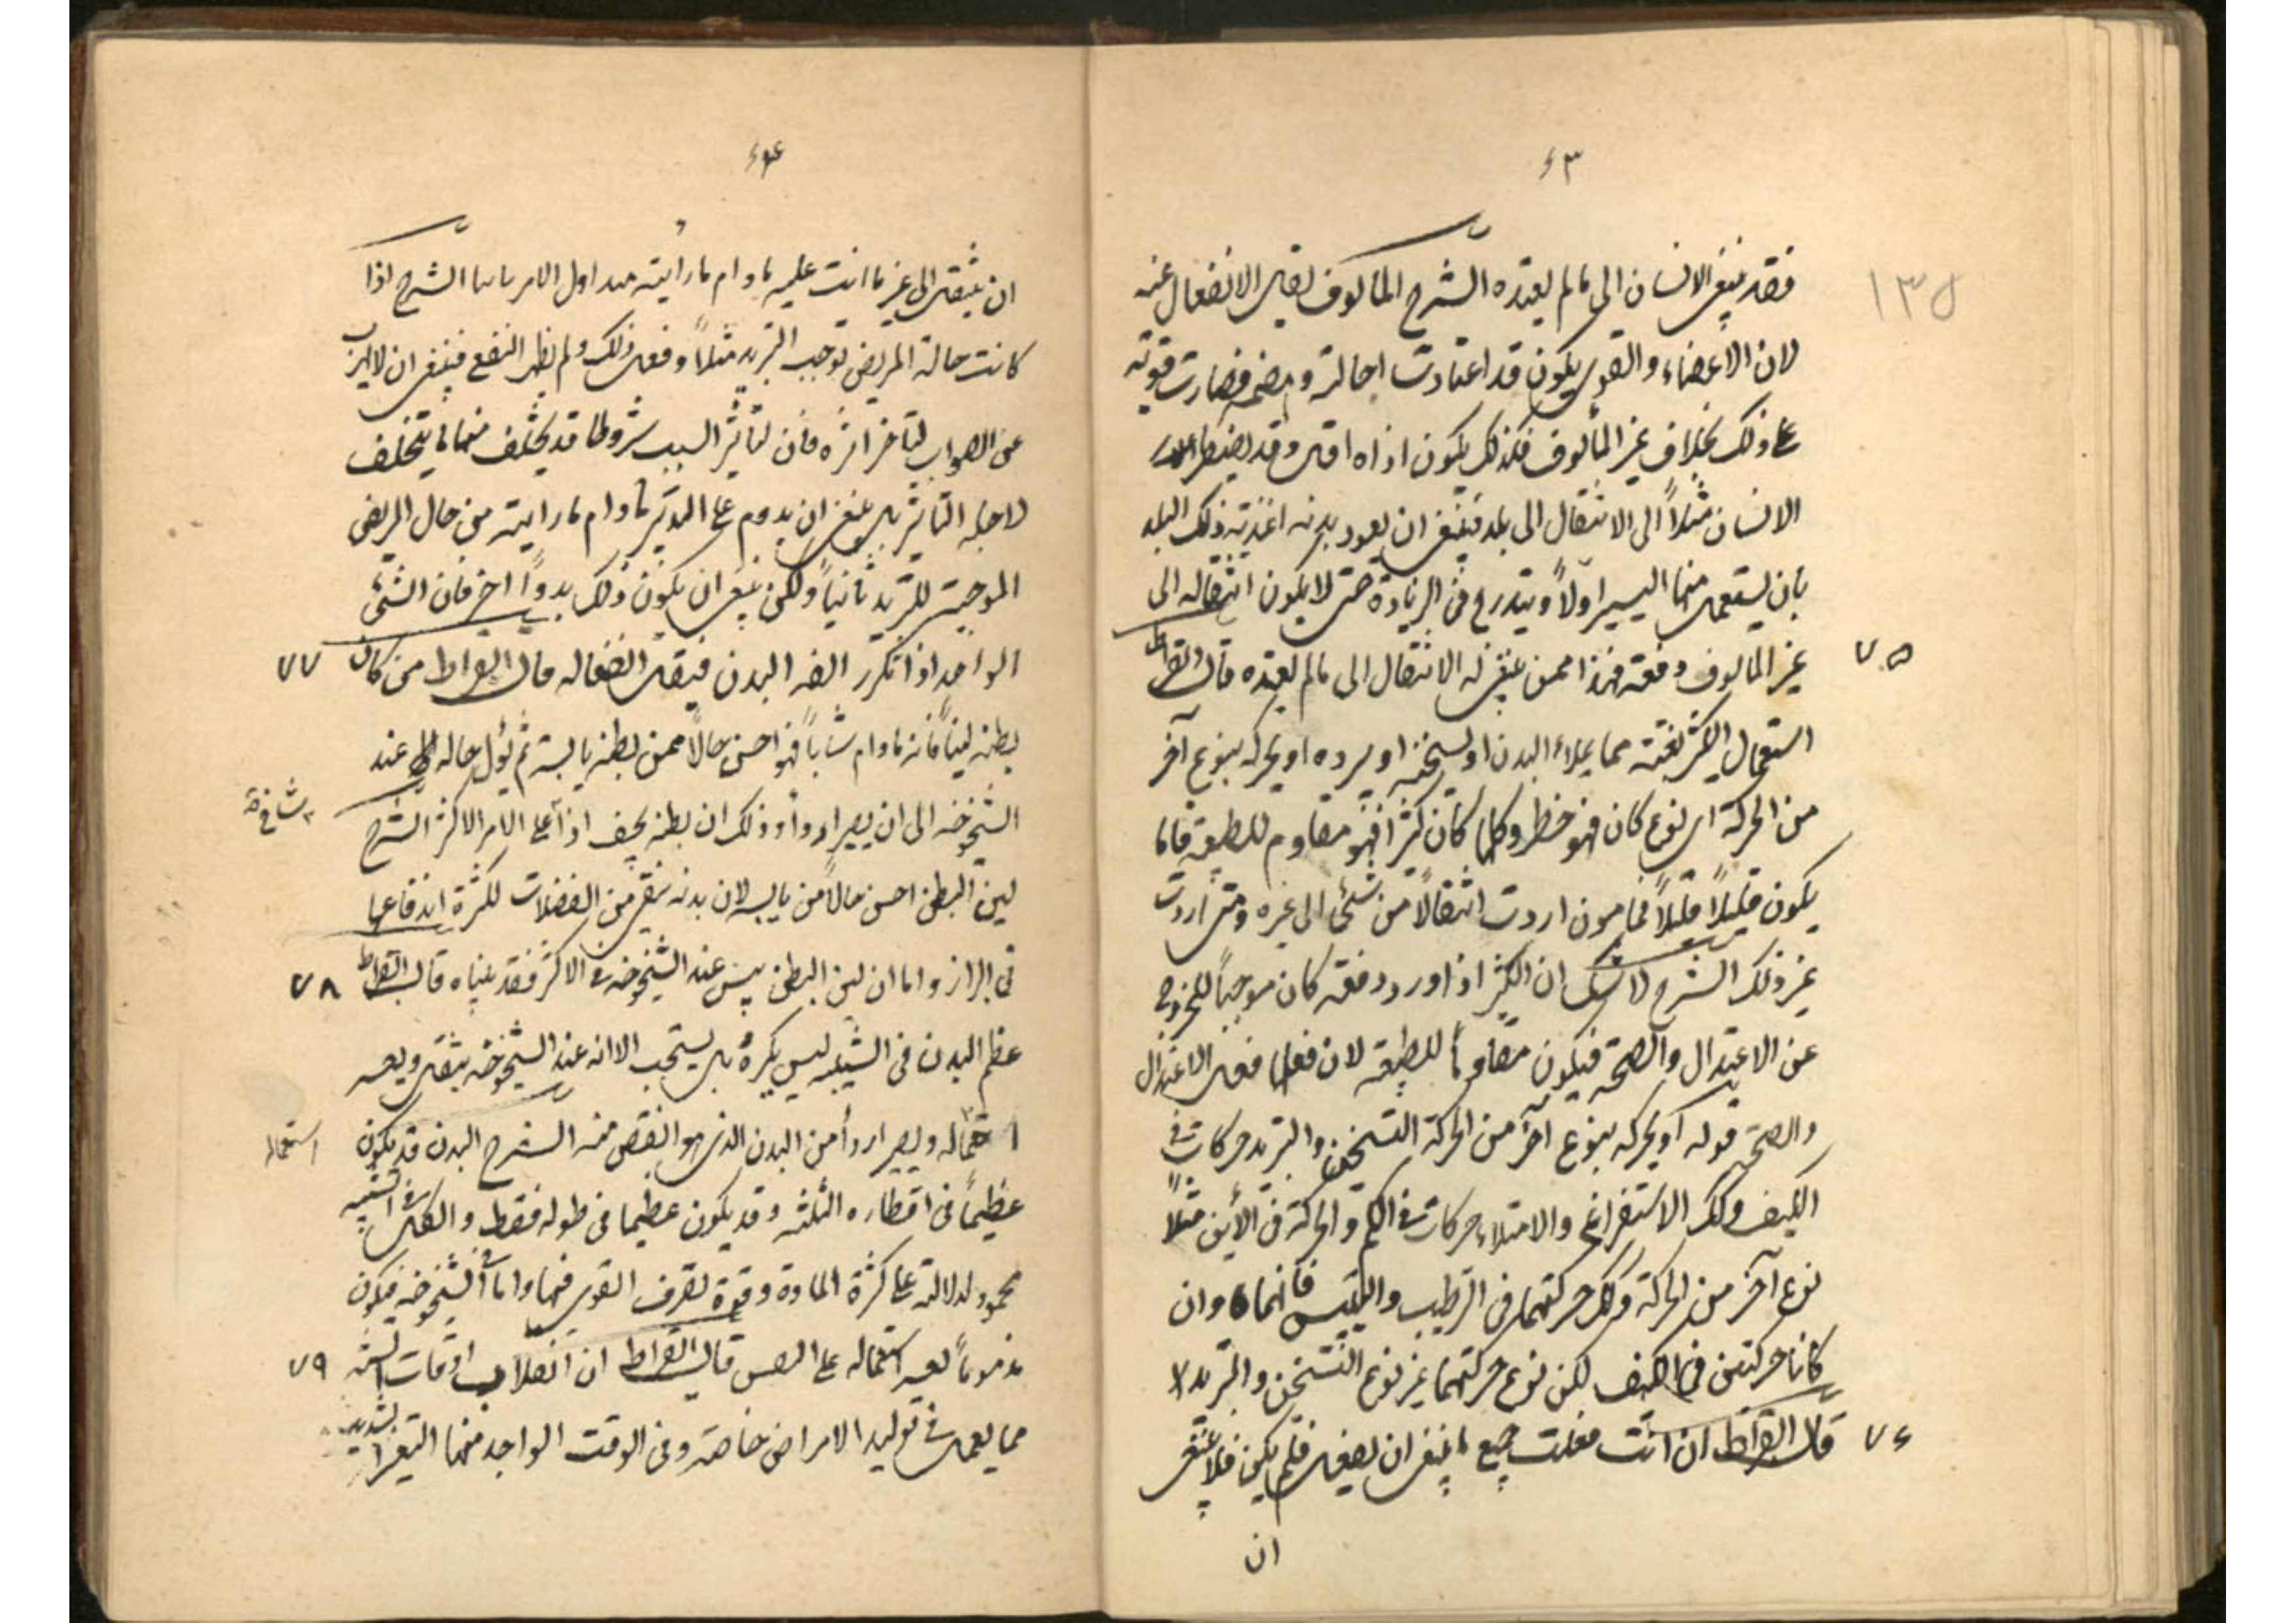 ٦٣
١٣٥
فقد ينبغى الانسان الى ما لم يعتده الشرح المألوف يقل الانفعال عنه
لان الاعضاء والقوى يكون قد اعتادت احالته وهضمه فصارت قوية
على ذلك بخلاف غير المألوف فلذلك يكون اذاه اقل وقد يضطر
الانسان مثلاً الى الانتقال الى بلد فينبغى ان يعود بدنه اغذية ذلك البلد
بان يستعمل منها اليسير اولاً ويتدرج فى الزيادة حتى لا يكون انتقاله الى
٧٥
غير المالوف دفعة فهذا ممن ينبغى له الانتقال الى ما لم يعتده قال ابقراط
استعمال الكثير بغتة مما يملاء البدن او يسخنه او يبرده او يحركه بنوع آخر
من الحركة اى نوع كان فهو خطر وكلما كان كثيرا فهو مقاوم للطبيعة فاما
يكون قليلاً قليلاً فمامون اردت انتقالاً من شئى الى غيره ومتى اردت
غير ذلك الشرح لا شك ان الكثير اذا ورد دفعة كان موجباً للخروج
عن الاعتدال والصحة فيكون مقاوماً للطبيعة لان فعلها فعل الاعتدال
والصحة قوله او يحركه بنوع آخر من الحركة التسخين والتبريد حركات فى
الكيف وكذلك الاستفراغ والامتلاء حركات فى الكم والحركة فى الأين مثلاً
نوع آخر من الحركة وكذلك حركتهما فى الترطيب والتيبيس فانهما وان
كانا حركتين فى الكيف لكن نوع حركتهما غير نوع التسخين والتبريد
٧٦
قال ابقراط ان انت فعلت جميع ما ينبغى ان يفعل فلم يكن فلا ينبغى
ان
٦٤
ان ينتقل الى غير ما انت عليه مادام ما رأيته منذ اول الامر ثابتا الشرح اذا
كانت حالة المريض توجب التبريد مثلاً وفعل ذلك ولم يظهر النفع فينبغى ان لا يهرب
عن الصواب لتأخر اثره فان لتأثير السبب شروطا قد يختلف منها ما يتخلف
لاجله التأثير بل ينبغى ان يدوم على التدبير مادام ما رايته من حال المريض
الموجبة للتبريد ثابتاً ولكن ينبغى ان يكون ذلك بدواً اخر فان الشئى
الواحد اذا تكرر الفه البدن فيقل انفعاله قال ابقراط من كان ٧٧
بطنه ليناً فانه مادام شاباً فهو احسن حالاً ممن بطنه يابسة ثم يؤل حاله عند
الشيخوخة الى ان يصير اردأ وذلك ان بطنه يجف اذا شاخ على الامر الاكثر الشرح
لين البطن احسن حالاً من يابسه لان بدنه ينقى من الفضلات لكثرة اندفاعها
فى البراز واما ان لين البطن ييبس عند الشيخوخة فى الاكثر فقد بيناه قال ابقراط ٧٨
عظم البدن فى الشبيبة ليس يكره بل يستحب الا انه عند الشيخوخة يثقل ويعسر
استعماله ويصير اردأ من البدن الذى هو انقص منه الشرح البدن قد يكون
عظيماً فى اقطاره الثلثة وقد يكون عظيما فى طوله فقط والكل فى الشبيبة
محمود لدلالته على كثرة المادة وقوة تصرف القوى فيها واما فى الشيخوخة فيكون
مذموماً لعسر استعماله على النفس قال ابقراط ان انقلاب اوقات السنة ٧٩
مما يعمل فى توليد الامراض خاصة وفى الوقت الواحد منها التغير الشديد